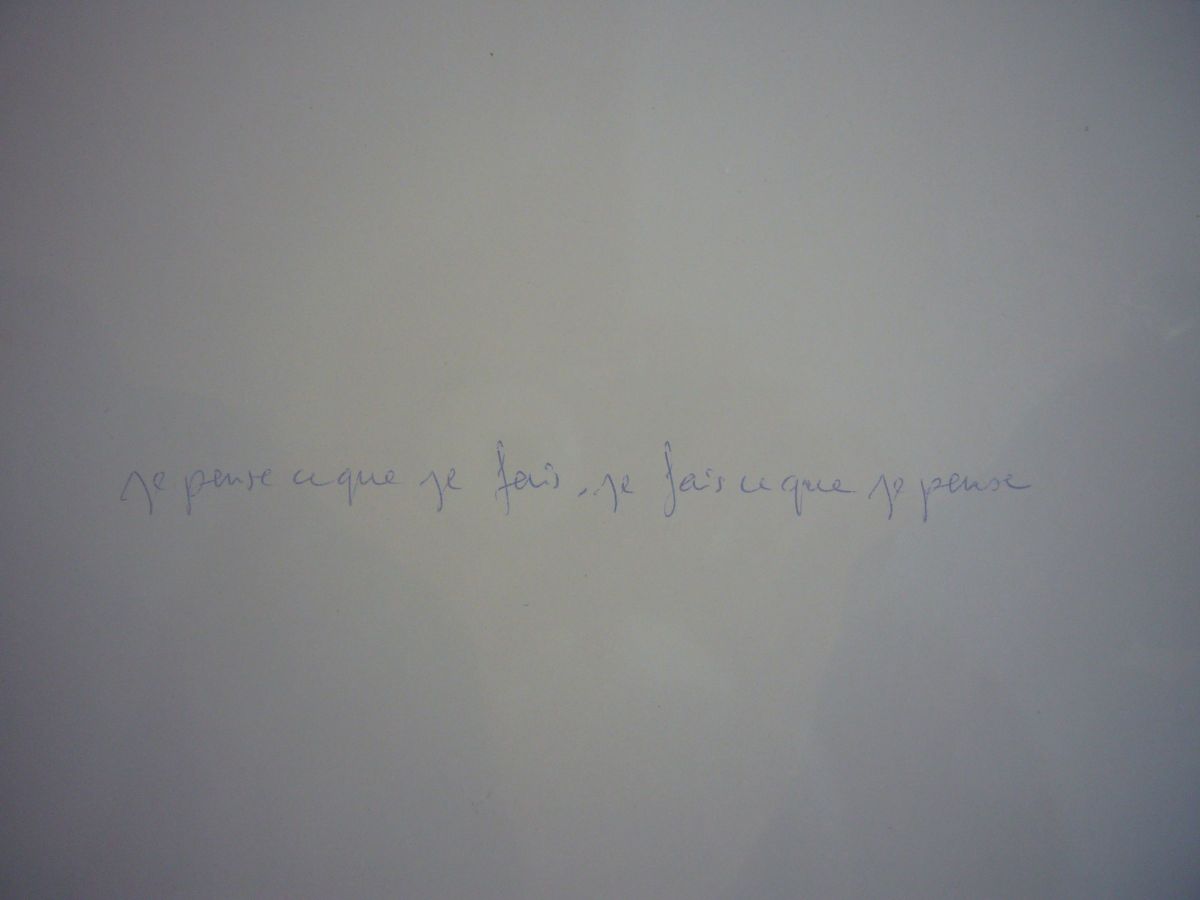 je pense ce que je fais, je fais ce que je pense